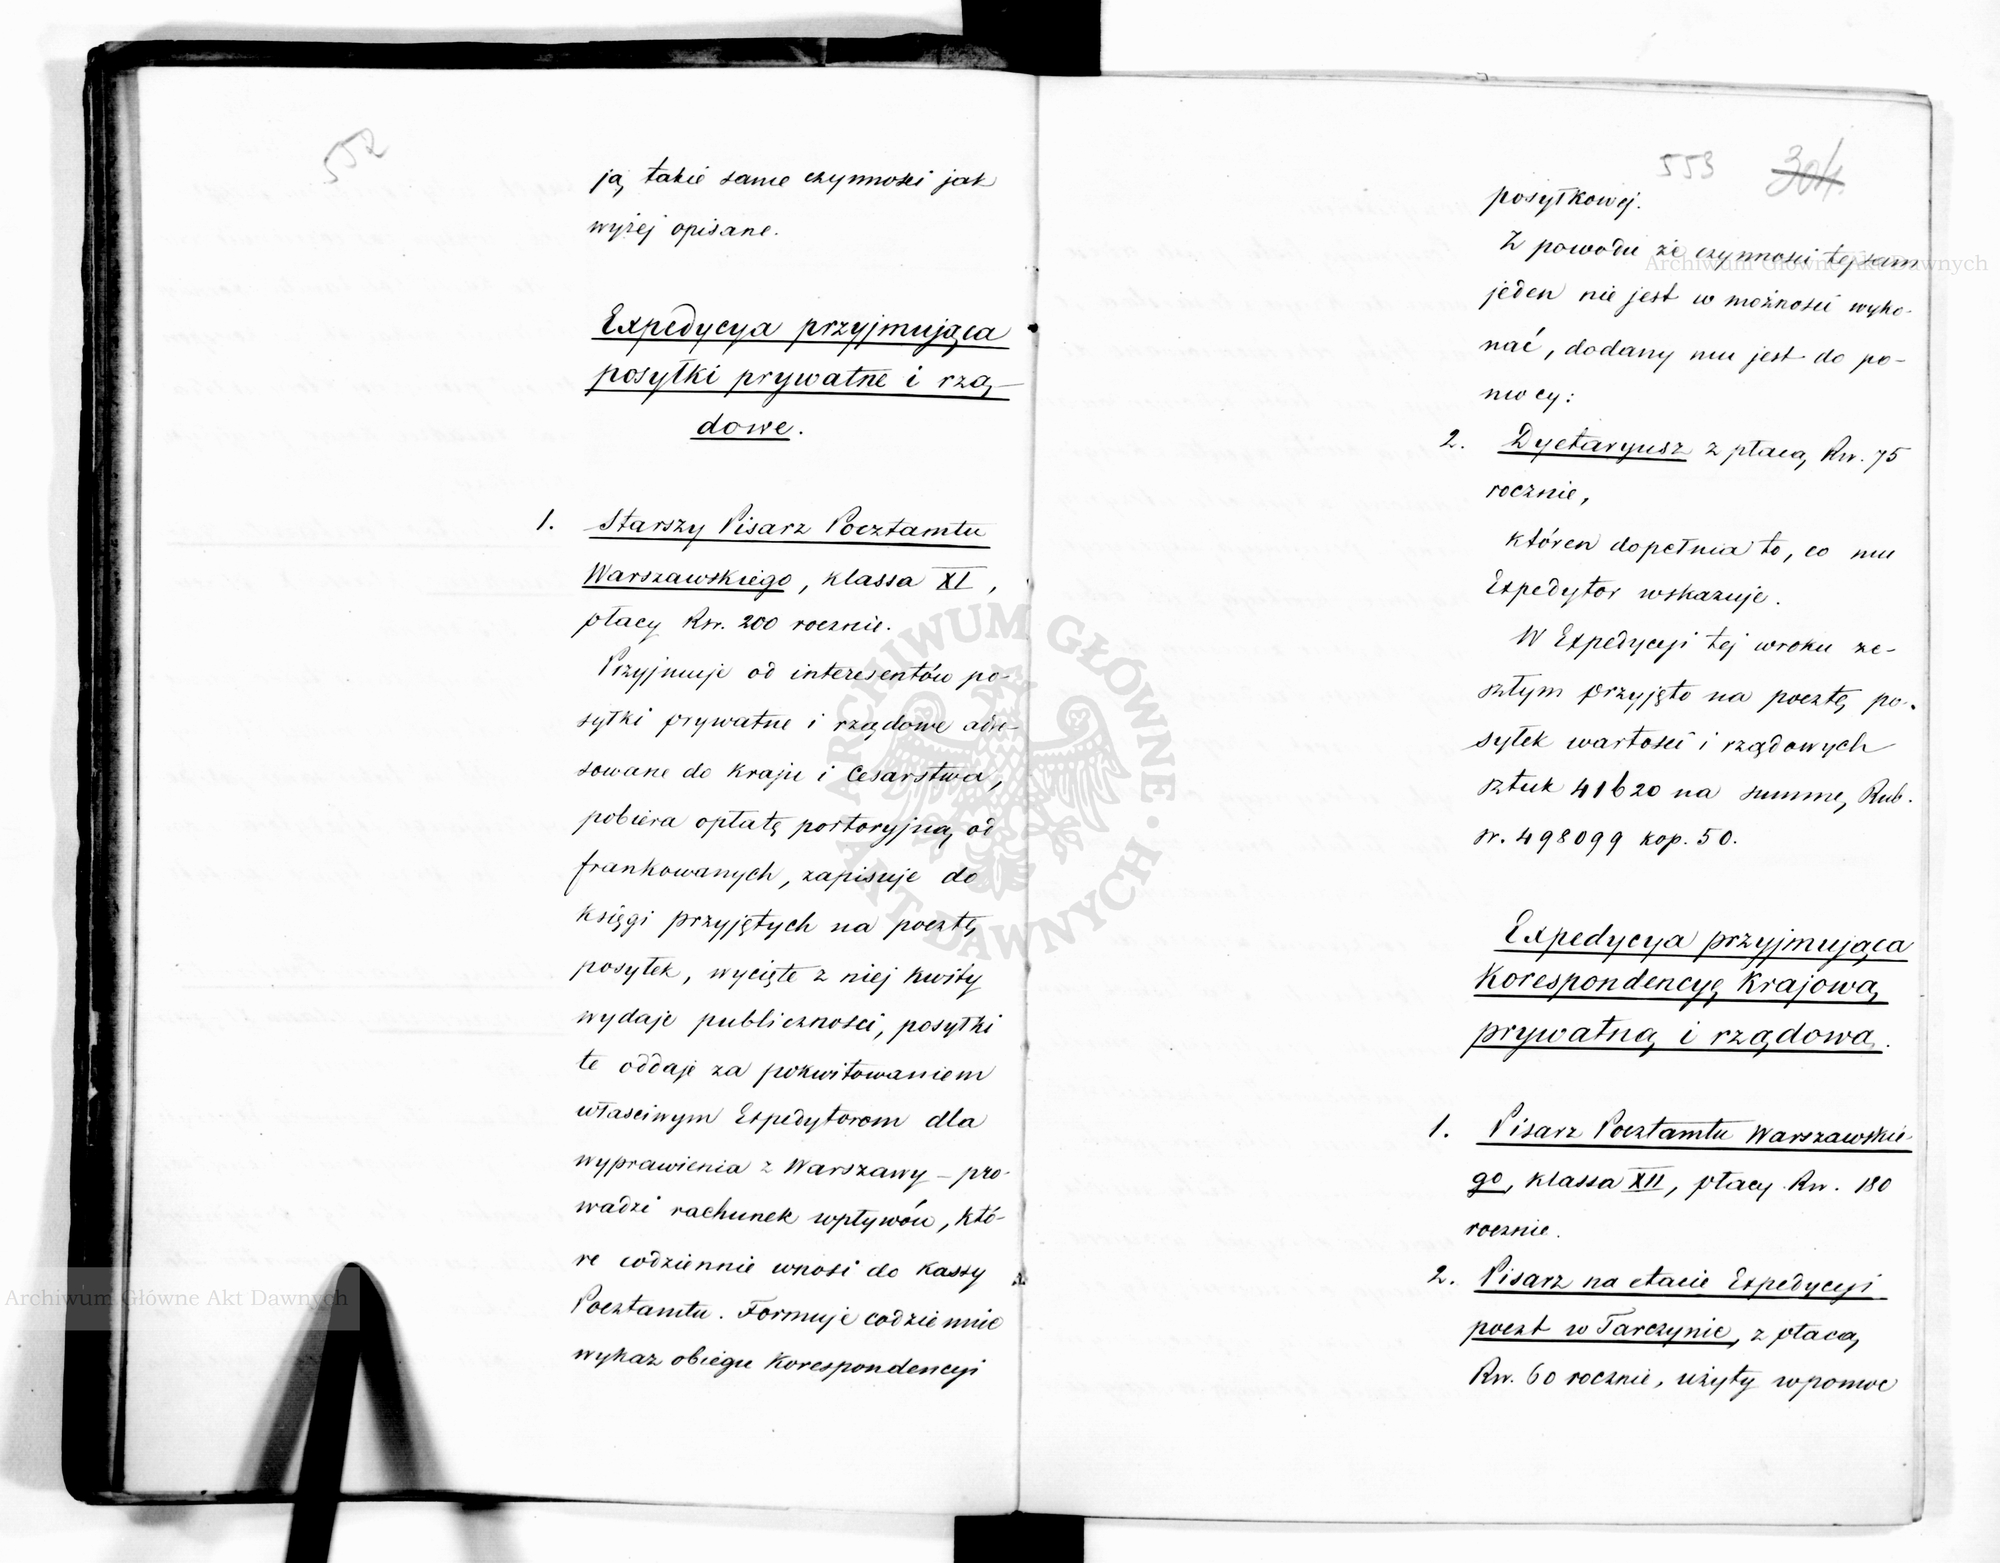 552
ją takie same czynności jak
wyżej opisane.
Expedycya przyjmująca
posyłki prywatne i rzą-
dowe.
1. Starszy Pisarz Pocztamtu
Warszawskiego, klassa XI,
płacy Rsr. 200 rocznie.
Przyjmuje od interesentów po-
syłki prywatne i rządowe adre-
sowane do Kraju i Cesarstwa,
pobiera opłatę portoryjną od
frankowanych, zapisuje do
księgi przyjętych na pocztę
posyłek, wycięte z niej kwity
wydaje publiczności, posyłki
te oddaje za pokwitowaniem
właściwym Expedytorom dla
wyprawienia z Warszawy – pro-
wadzi rachunek wpływów, któ-
re codziennie wnosi do Kassy
Pocztamtu. Formuje codziennie
wykaz obiegu Korespondencyi
553 304
posyłkowej.
Z powodu że czynności tej sam
jeden nie jest w możności wyko-
nać, dodany mu jest do po-
mocy:
2. Dyetaryusz z płacą Rsr. 75
rocznie,
któren dopełnia to, co mu
Expedytor wskazuje.
W Expedycyi tej w roku ze-
szłym przyjęto na pocztę po-
syłek wartości i rządowych
sztuk 41620 na summę Rub.
sr. 498099 kop. 50.
Expedycya przyjmująca
Korespondencyę Krajową
prywatną i rządową.
1. Pisarz Pocztamtu Warszawskie-
go, klassa XII, płacy Rsr. 180
rocznie.
2. Pisarz na etacie Expedycyi
poczt w Tarczynie, z płacą
Rsr. 60 rocznie, użyty w pomoc
Archiwum Główne Akt Dawnych
Archiwum Główne Akt Dawnych
ARCHIWUM GŁÓWNE AKT DAWNYCH